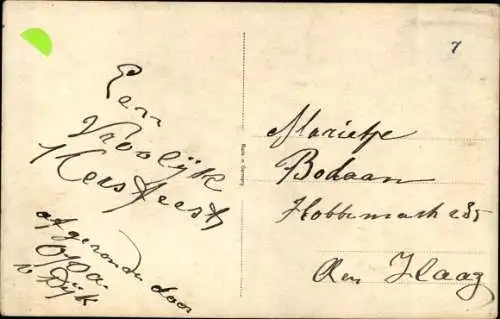 7
Een
Vroolijk
Kersfeest
afgezonden door
Opa.
v Dijk
Made in Germany
Marietje
Bodaan
Hobbemastr 235
Den Haag